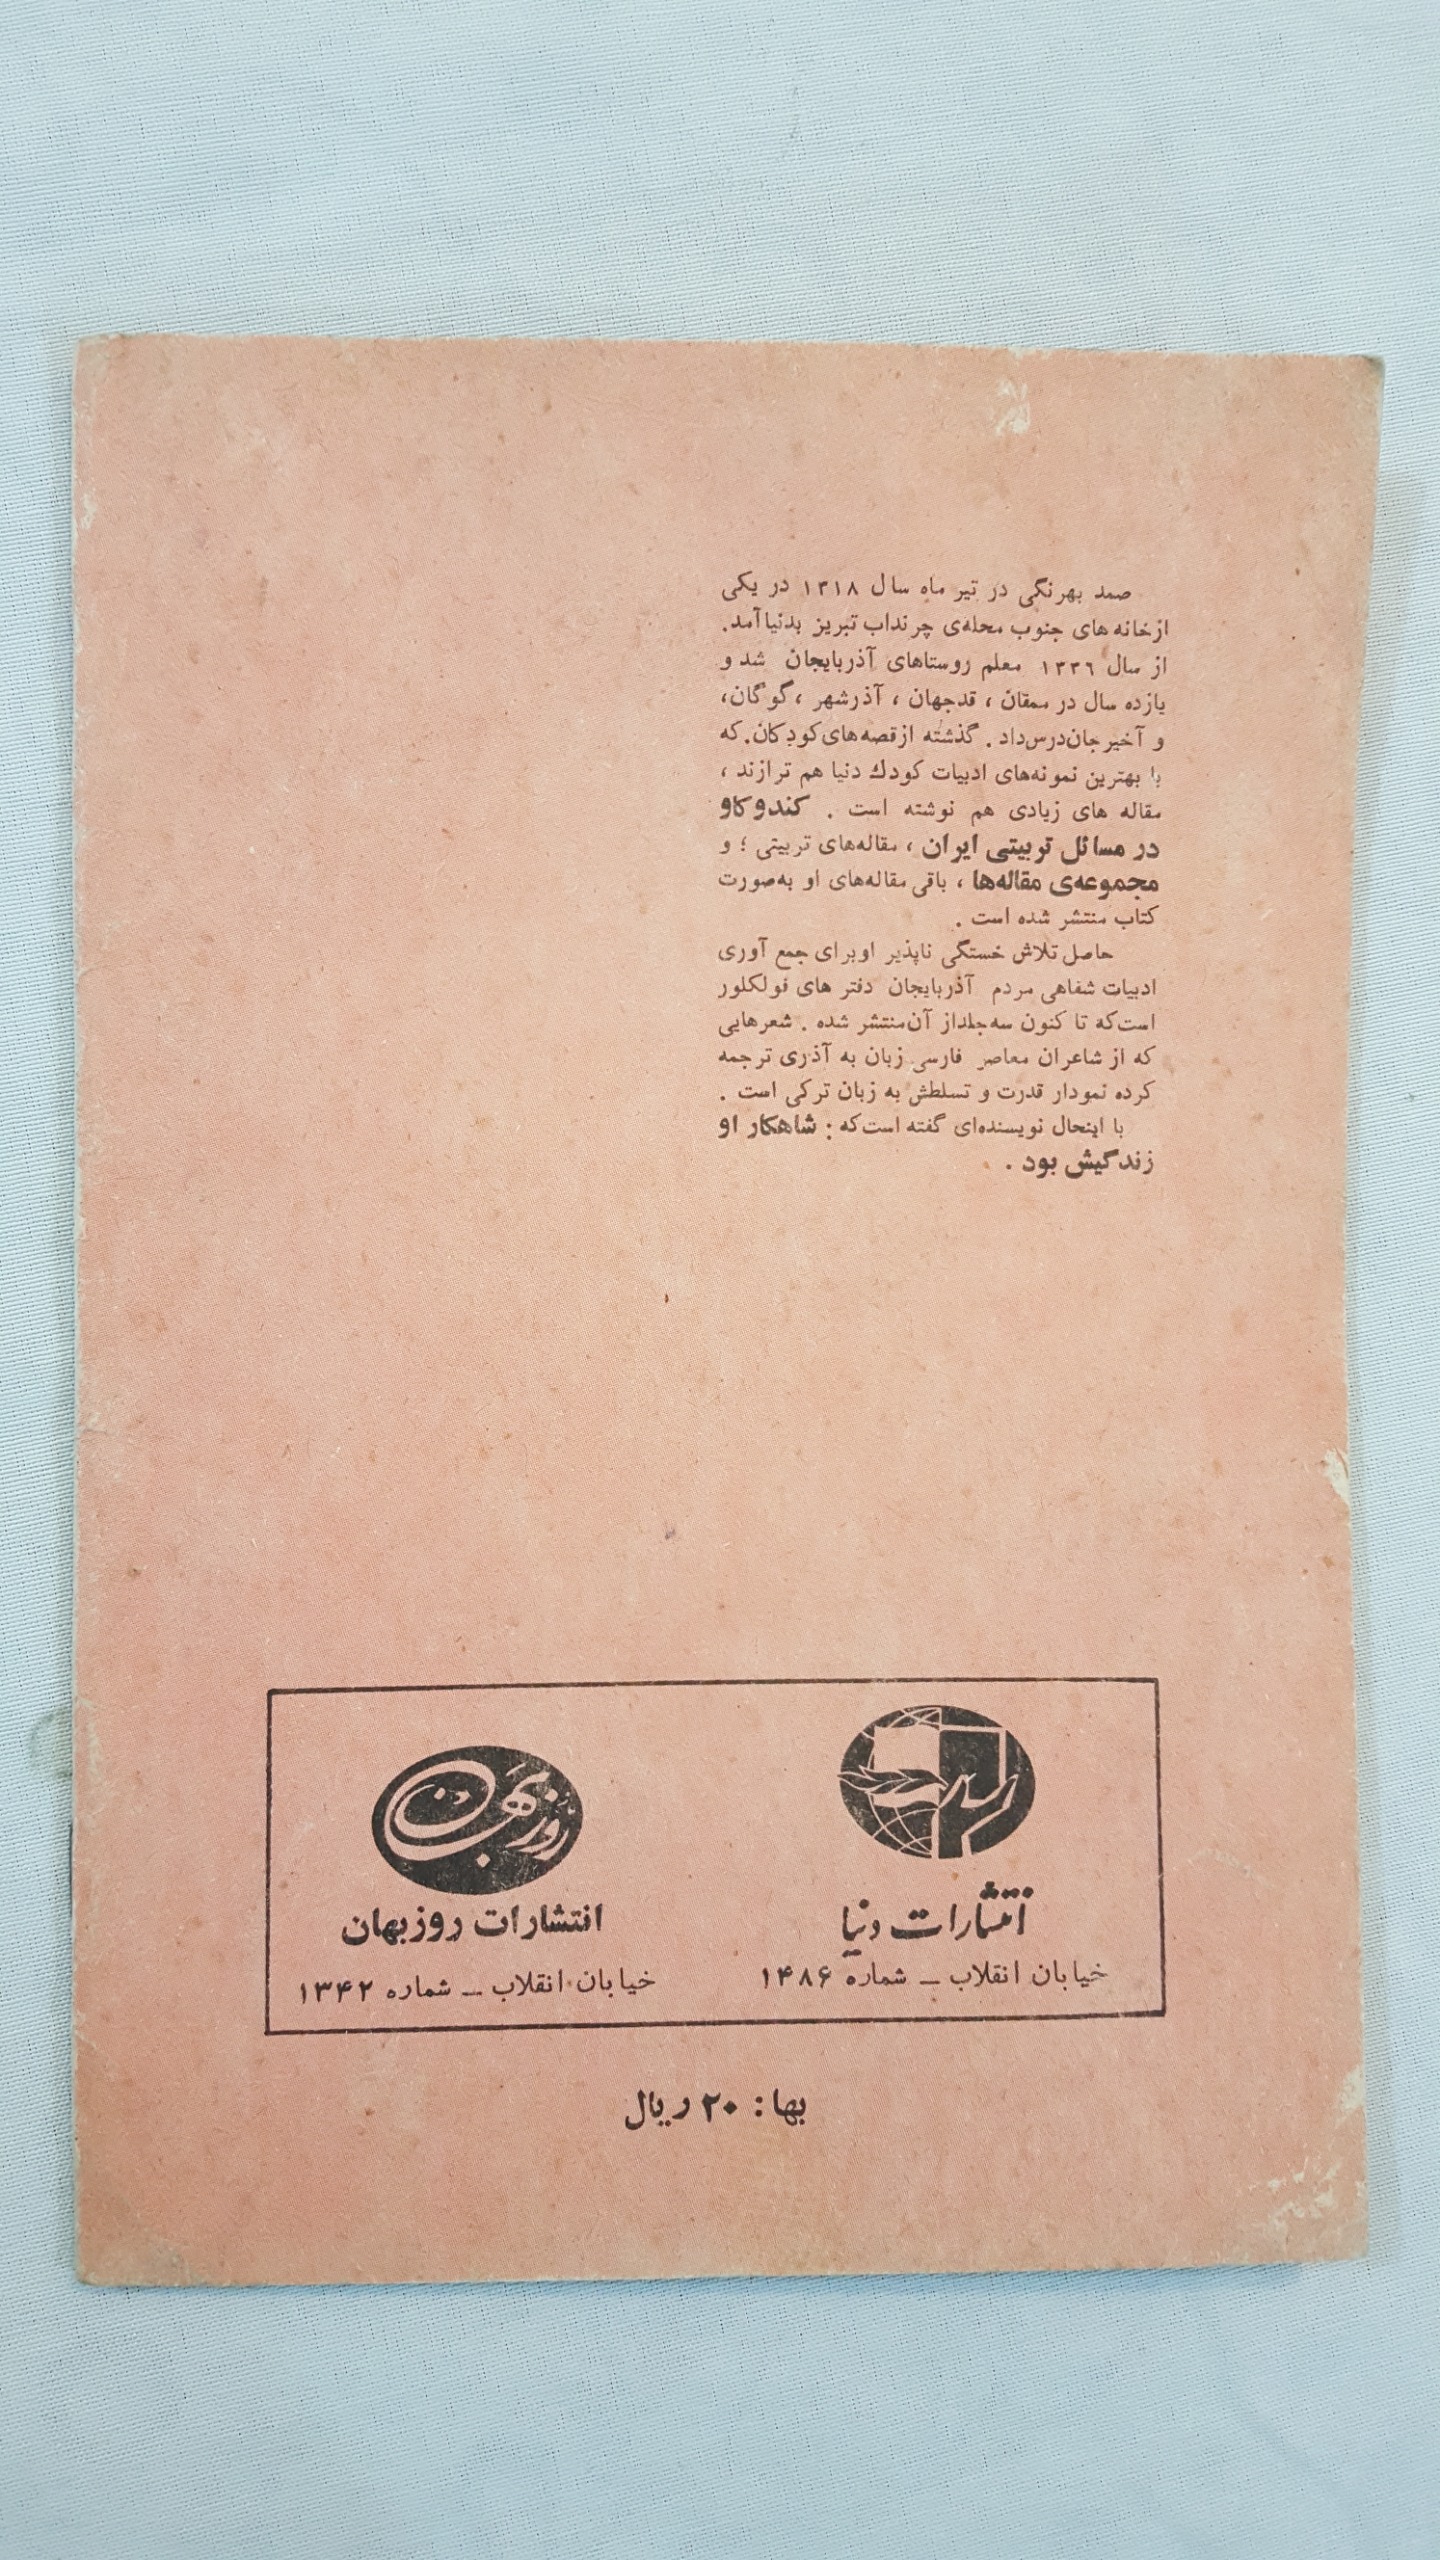 صمد بهرنگی در تیر ماه سال ۱۳۱۸ در یکی
ازخانه های جنوب محله‌ی چرنداب تبریز بدنیا آمد.
از سال ۱۳۳۶ معلم روستاهای آذربایجان شد و
یازده سال در ممقان ، قدجهان ، آذرشهر ، گوگان،
و آخیرجان درس داد . گذشته ازقصه های کودکان. که
با بهترین نمونه‌های ادبیات کودك دنیا هم ترازند ،
مقاله های زیادی هم نوشته است . کندوکاو
در مسائل تربیتی ایران ، مقاله‌های تربیتی ؛ و
مجموعه‌ی مقاله‌ها ، باقی مقاله‌های او به‌صورت
کتاب منتشر شده است .
حاصل تلاش خستگی ناپذیر اوبرای جمع آوری
ادبیات شفاهی مردم آذربایجان دفتر های فولکلور
است که تا کنون سه‌جلداز آن منتشر شده . شعرهایی
که از شاعران معاصر فارسی زبان به آذری ترجمه
کرده نمودار قدرت و تسلطش به زبان ترکی است .
با اینحال نویسنده‌ای گفته است که : شاهکار او
زندگیش بود .
روزبهان
انتشارات دنیا
خیابان انقلاب ـ شماره ۱۴۸۶
انتشارات روزبهان
خیابان انقلاب ـ شماره ۱۳۴۲
بها : ۲۰ ریال